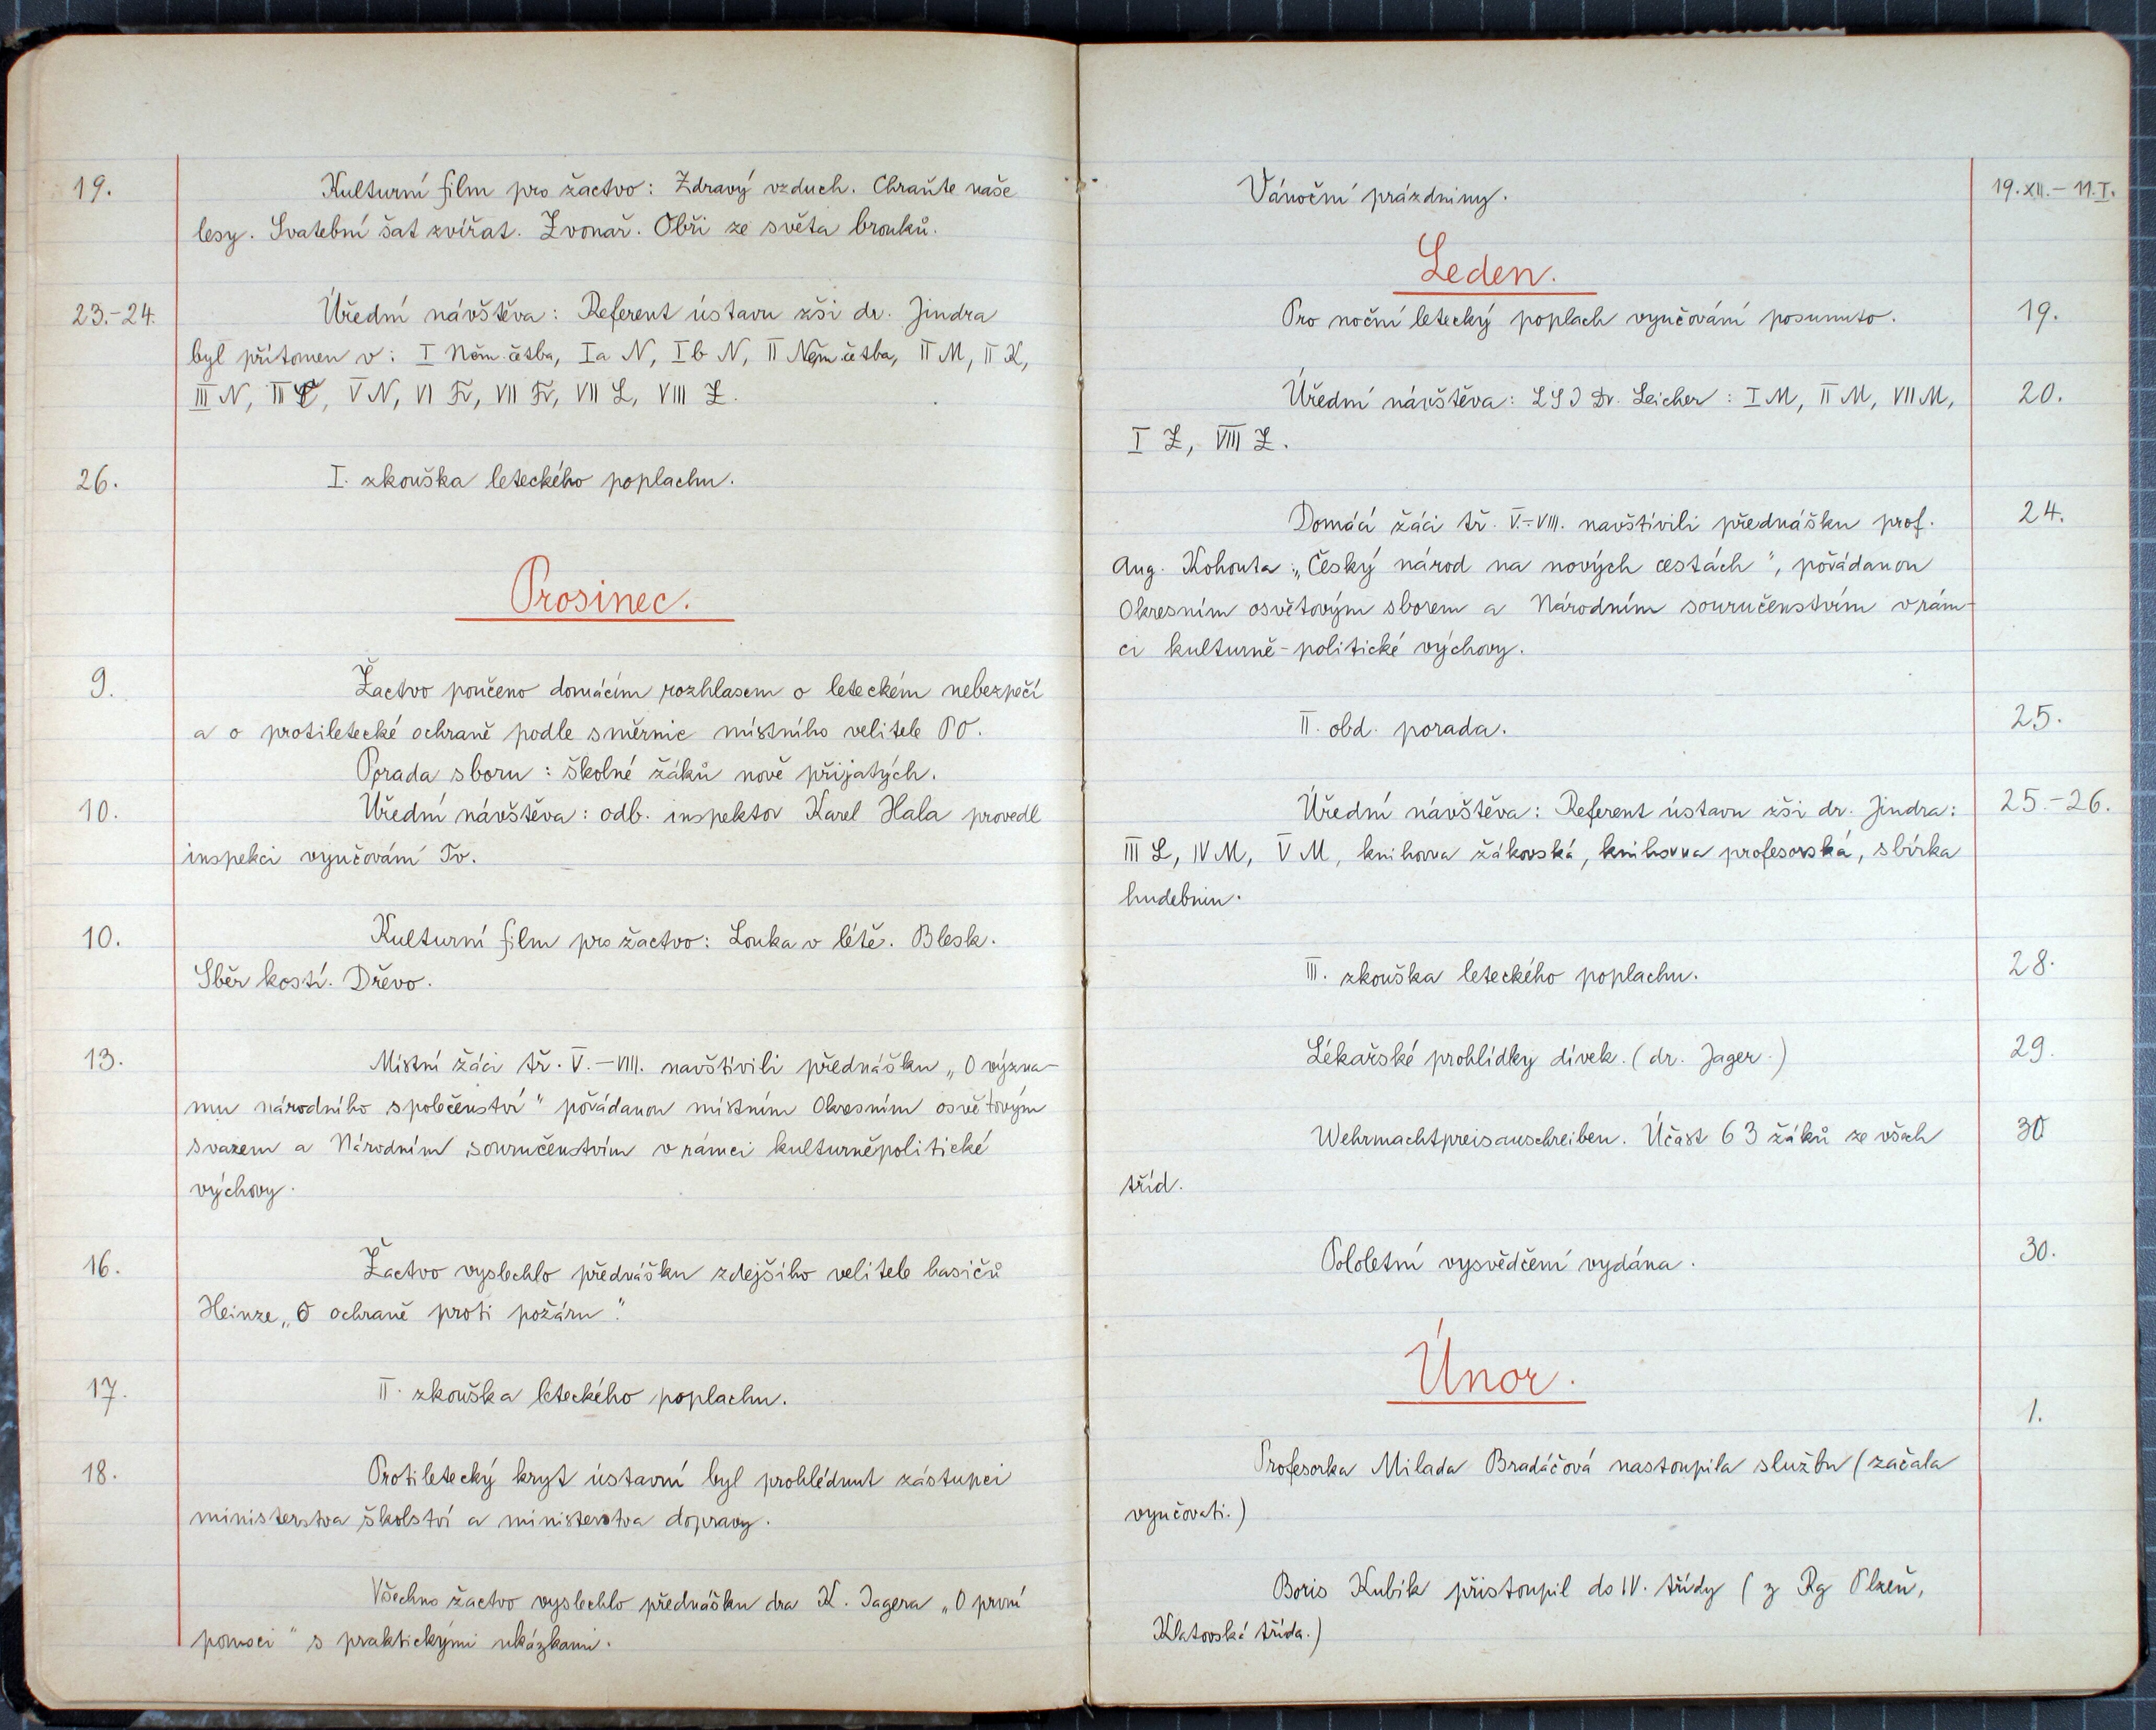 19. Kulturní film pro žactvo: Zdravý vzduch. Chraňte naše
lesy. Svatební šat zvířat. Zvonař. Obři ze světa brouků.
23.-24. Úřední návštěva: Referent ústavu zši dr. Jindra
byl přítomen v: I Něm. četba, Ia N, Ib N, II Něm četba, II M, II K,
III N, III, V N, VI Fr, VII Fr, VII L, VIII Z.
26. I. zkouška leteckého poplachu.
Prosinec.
9. Žactvo poučeno domácím rozhlasem o leteckém nebezpečí
a o protiletecké ochraně podle směrnic místního velitele PO.
Porada sboru: školné žáků nově přijatých.
10. Úřední návštěva: odb. inspektor Karel Hala provedl
inspekci vyučování Tv.
10. Kulturní film pro žactvo: Louka v létě. Blesk.
Sběr kostí. Dřevo.
13. Místní žáci tř. V.-VIII. navštívili přednášku „O význa-
mu národního společenství" pořádanou místním Okresním osvětovým
svazem a Národním souručenstvím v rámci kulturněpolitické
výchovy.
16. Žactvo vyslechlo přednášku zdejšího velitele hasičů
Heinze „O ochraně proti požáru".
17. II. zkouška leteckého poplachu.
18. Protiletecký kryt ústavní byl prohlédnut zástupci
ministerstva školství a ministerstva dopravy.
Všechno žactvo vyslechlo přednášku dra K. Jagera „O první
pomoci" s praktickými ukázkami.
Vánoční prázdniny. 19.XII.-11.I.
Leden.
Pro noční letecký poplach vyučování posunuto. 19.
Úřední návštěva: LSI Dr. Leicher: I M, II M, VII M, 20.
I Z, VIII Z.
Domácí žáci tř. V.-VIII. navštívili přednášku prof. 24.
Aug. Kohouta: „Český národ na nových cestách", pořádanou
Okresním osvětovým sborem a Národním souručenstvím v rám-
ci kulturně-politické výchovy.
II. obd. porada. 25.
Úřední návštěva: Referent ústavu zši dr. Jindra: 25.-26.
III L, IV M, V M, knihovna žákovská, knihovna profesorská, sbírka
hudebnin.
III. zkouška leteckého poplachu. 28.
Lékařské prohlídky dívek. (dr. Jager.) 29.
Wehrmachtpreisauschreiben. Účast 63 žáků ze všech 30
tříd.
Pololetní vysvědčení vydána. 30.
Únor.
1.
Profesorka Milada Bradáčová nastoupila službu (začala
vyučovati.)
Boris Kubík přistoupil do IV. třídy (z Rg Plzeň,
Klatovská třída.)